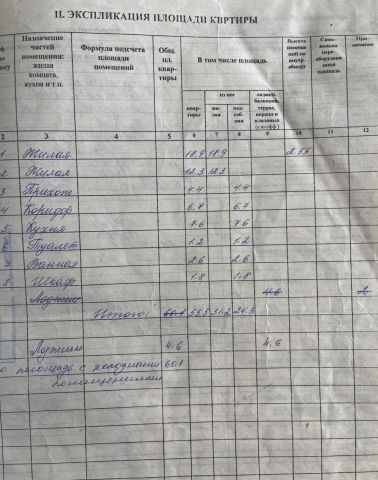 II. ЭКСПЛИКАЦИЯ ПЛОЩАДИ КВРТИРЫ
Назначение частей помещения: жилая комната, кухня и т.п.
Формула подсчета площади помещений
Общ. пл. квартиры
В том числе площадь
из нее
квартиры
жилая
подсобная
лоджии, балконов, террас, веранд и кладовых (с коэфф.)
Высота помещений по внутр. обмеру
Самовольно переоборудованная площадь
Примечание
2 3 4 5 6 7 8 9 10 11 12
1 Жилая 18.9 18.9 2.55
2 Жилая 12.3 12.3
3 Прихож 4.4 4.4
4 Коридор 6.7 6.7
5 Кухня 7.6 7.6
6 Туалет 1.2 1.2
Ванная 2.6 2.6
8 Шкаф 1.8 1.8
Лоджия 4.6
Итого: 60.1 55,5 31.2 24.3
Лоджия 4.6 4.6
площадь с холодными 60.1
помещениями